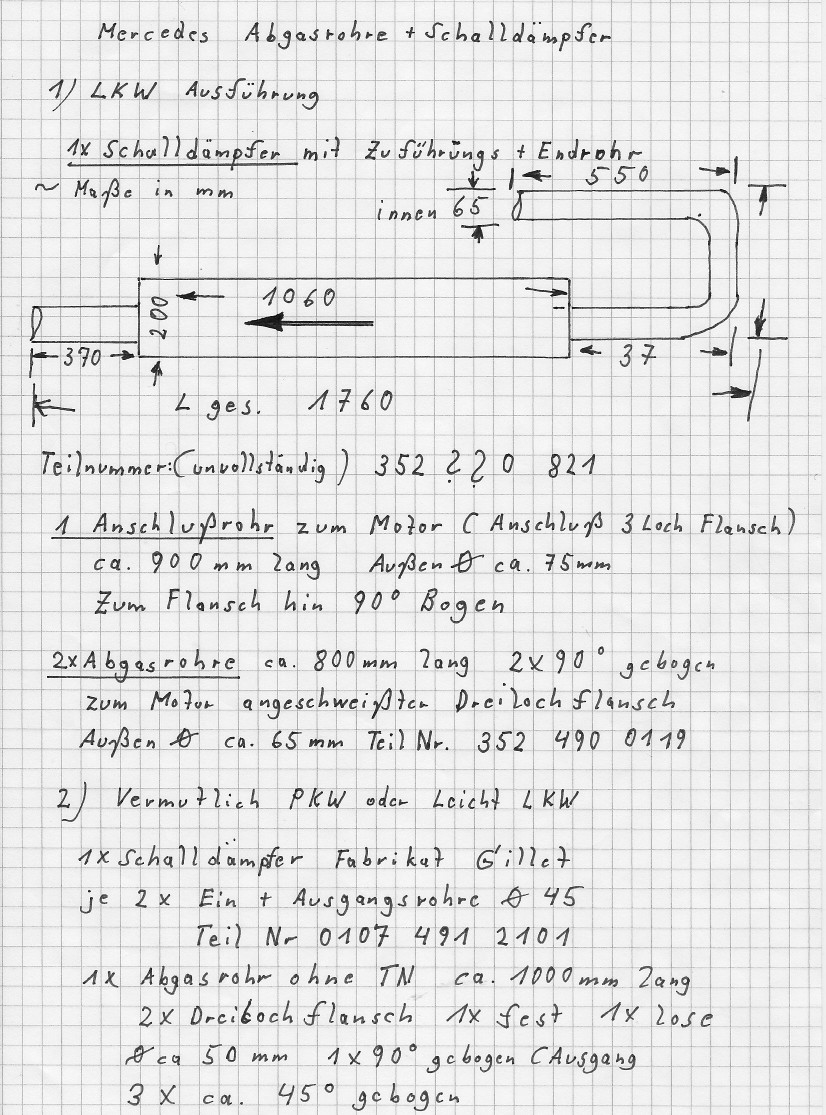 Mercedes Abgasrohre + Schalldämpfer
1) LKW Ausführung
1x Schalldämpfer mit Zuführungs + Endrohr
~ Maße in mm
550
innen 65
200
1060
370
37
L ges. 1760
Teilnummer: (unvollständig) 352 ??0 821
1 Anschlußrohr zum Motor (Anschluß 3 Loch Flansch)
ca. 900 mm lang Außen Ø ca. 75mm
Zum Flansch hin 90° Bogen
2x Abgasrohre ca. 800mm lang 2x90° gebogen
zum Motor angeschweißter Dreiloch flansch
Außen Ø ca. 65 mm Teil Nr. 352 490 0119
2) Vermutlich PKW oder Leicht LKW
1x Schalldämpfer Fabrikat Gillet
je 2x Ein + Ausgangsrohre Ø 45
Teil Nr 0107 491 2101
1x Abgasrohr ohne TN ca. 1000mm lang
2x Dreiloch flansch 1x fest 1x lose
Ø ca 50 mm 1x90° gebogen (Ausgang
3 x ca. 45° gebogen